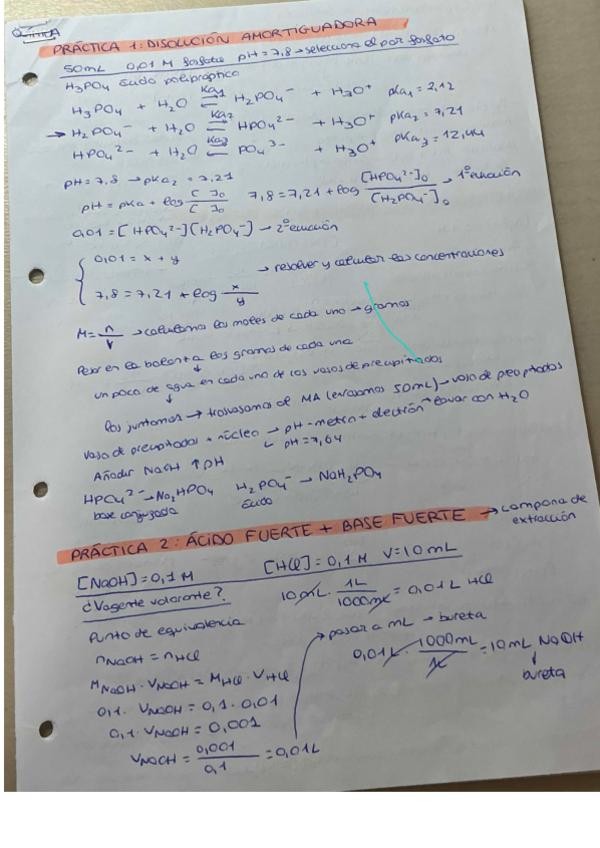 QUÍMICA
PRÁCTICA 1: DISOLUCIÓN AMORTIGUADORA
50mL 0,01 M fosfato pH = 7,8 → selecciona el par fosfato
H₃PO₄ ácido poliprótico
H₃PO₄ + H₂O ⇌ Ka₁ H₂PO₄⁻ + H₃O⁺ pKa₁ = 2,12
→ H₂PO₄⁻ + H₂O ⇌ Ka₂ HPO₄²⁻ + H₃O⁺ pKa₂ = 7,21
HPO₄²⁻ + H₂O ⇌ Ka₃ PO₄³⁻ + H₃O⁺ pKa₃ = 12,44
pH = 7,8 → pKa₂ = 7,21
pH = pKa + log [ ]₀ / [ ]₀ 7,8 = 7,21 + log [HPO₄²⁻]₀ / [H₂PO₄⁻]₀ → 1ª ecuación
0,01 = [HPO₄²⁻][H₂PO₄⁻] → 2ª ecuación
{ 0,01 = x + y
→ resolver y calcular las concentraciones
7,8 = 7,21 + log x/y
M = n/V → calculamos los moles de cada uno → gramos
Pesar en la balanza los gramos de cada uno
↓
un poco de agua en cada uno de los vasos de precipitados
↓
los juntamos → trasvasamos al MA (enrasamos 50mL) → vaso de precipitados
vaso de precipitados + núcleo → pH-metro + electrón → lavar con H₂O
↳ pH = 7,64
Añadir NaOH ↑ pH
HPO₄²⁻ → Na₂HPO₄ H₂PO₄⁻ → NaH₂PO₄
base conjugada ácido
PRÁCTICA 2: ÁCIDO FUERTE + BASE FUERTE → campana de extracción
[NaOH] = 0,1 M [HCl] = 0,1 M V = 10 mL
¿Vagente valorante?
10 mL · 1L / 1000mL = 0,01 L HCl
Punto de equivalencia
→ pasar a mL → bureta
nNaOH = nHCl
0,01 L · 1000mL / 1L = 10 mL NaOH
↓
bureta
MNaOH · VNaOH = MHCl · VHCl
0,1 · VNaOH = 0,1 · 0,01
0,1 · VNaOH = 0,001
VNaOH = 0,001 / 0,1 = 0,01L